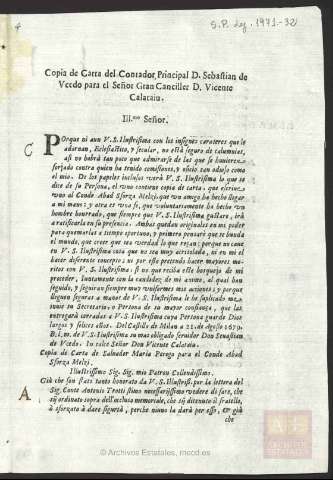 S.P. leg. 1971-32
Copia de Carta del Contador Principal D. Sebastian de
Vcedo para el Señor Gran Canciller D. Vicente
Calataiu.
Ill.mo Señor.
C
Porque ni aun V. S. Ilustrisima con los insignes carateres que le
adornan, Eclesiastico, y secular, no está seguro de calumnies,
assi no habrá tan poco que admirarse de las que se huvieren
forjado contra quien ha tenido comissiones, y niuelo tan odioso como
el mio. De los papeles inclusos verá V. S. Ilustrisima lo que se
dice de su Persona, el uno contiene copia de carta, que escriue
uno al Conde Abad Sforza Melzi, que un amigo ha hecho llegar
a mi mano; y otra es una fe, que voluntariamente ha hecho un
hombre honrrado, que siempre que V. S. Ilustrisima gustare, irà
à ratificarla en su presencia. Ambas quedan originales en mi poder
para quemarlas a tiempo oportuno, y primero pensaré que se hunda
el mundo, que creer que sea verdad lo que rezan; porque no cave
en V. S. Ilustrisima cosa que no sea muy acrisolada, ni en mi el
hacer diferente concepto; no por esto pretendo hacer mayores me-
ritos con V. S. Ilustrisima, si no que reciba este bosquejo de mi
proceder, juntamente con la candidez de mi animo, el qual han
seguido, y seguiran siempre muy vniformes mis acciones; y porque
lleguen seguras a manos de V. S. Ilustrisima le he suplicado me
invie su Secretario, o Persona de su mayor confiança, que las
entregará cerradas a V. S. Ilustrisima cuya Persona guarde Dios
largos y felices años. Del Castillo de Milan a 21. de Agosto 1679.
B. l. m. de V. S. Ilustrisima su mas obligado seruidor Don Sebastian
de Vcedo. Yo inlce Señor Don Vicente Calataiu.
Copia de Carta de Salvador Maria Perego para el Conde Abad
Sforza Melzi.
Illustrissimo Sig. Sig. mio Patron Collendissimo.
A
Già che son stato tanto honorato da V. S. Illustriss. per la lettera del
Sig. Conte Antonio Trotti stimo necessarissimo vedere di fare, che
sij ordinato sopra dell'accluso memoriale, che sij ditenuto il fratello,
à sforzato à dare sigurtà, perche niuno la darà per esso, & già
che
ARCHIVOS ESTATALES
© Archivos Estatales, mecd.es